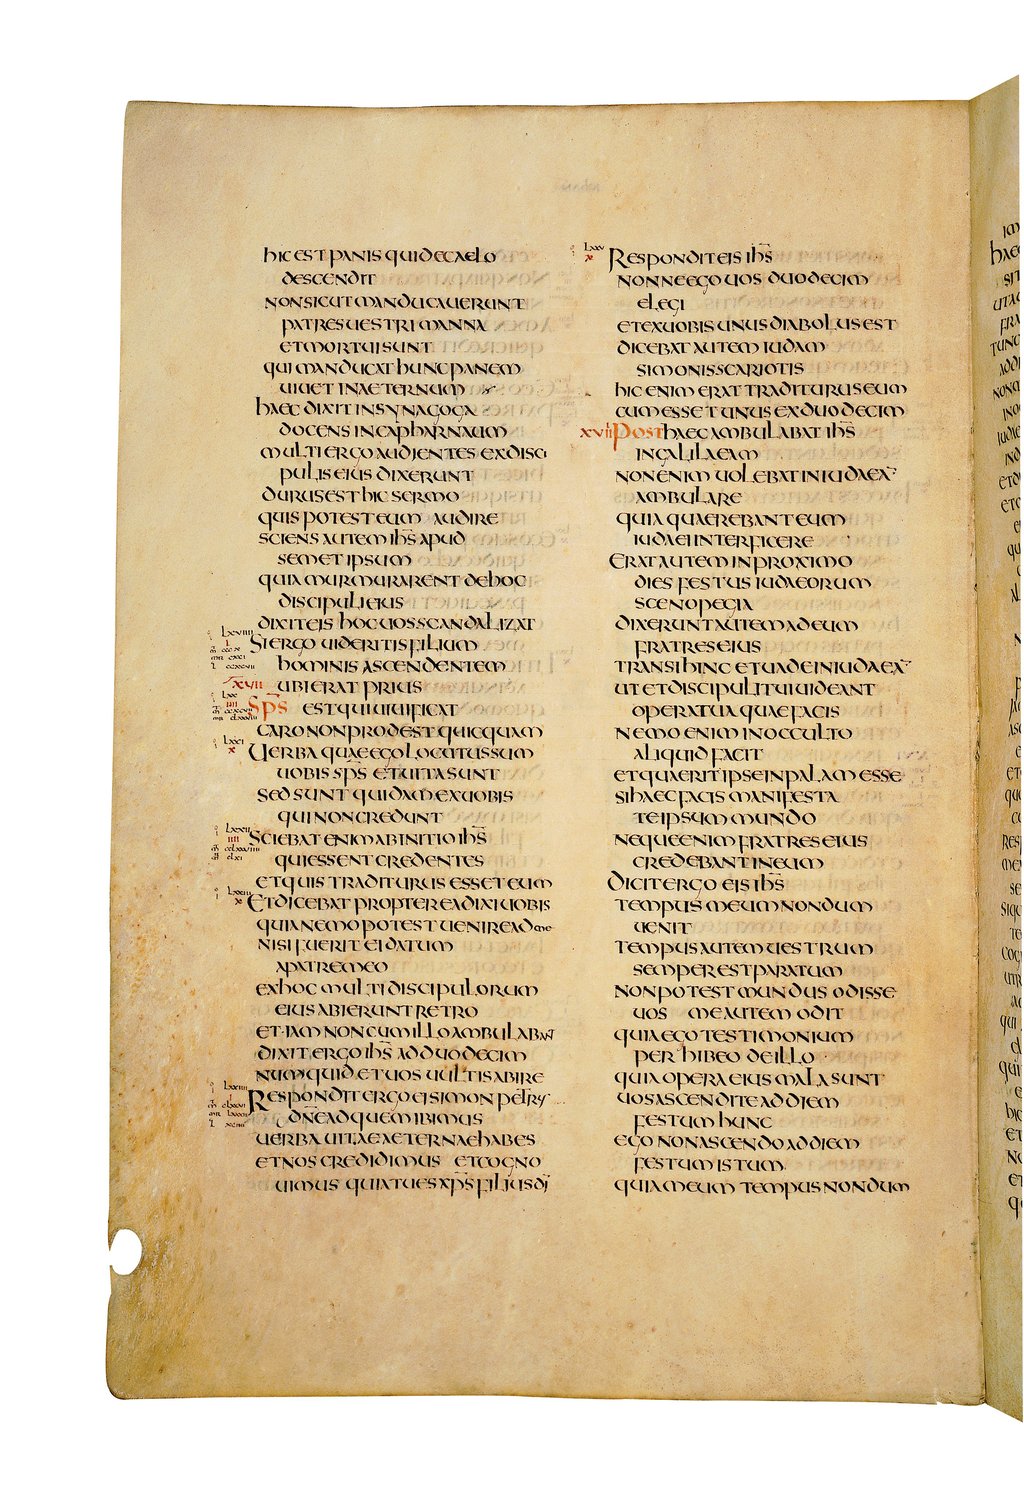 hic est panis qui de caelo
descendit
non sicut manducauerunt
patres uestri manna
et mortui sunt
qui manducat hunc panem
uiuet in aeternum
haec dixit in synagoga
docens in capharnaum
multi ergo audientes ex disci
pulis eius dixerunt
durus est hic sermo
quis potest eum audire
sciens autem ihs apud
semet ipsum
quia murmurarent de hoc
discipuli eius
dixit eis hoc uos scandalizat
lxviiii
Si ergo uideritis filium
hominis ascendentem
xvii ubi erat prius
lxx
sps est qui uiuificat
caro non prodest quicquam
lxxi
x Uerba quae ego locutus sum
uobis sps et uita sunt
sed sunt quidam ex uobis
qui non credunt
lxxii
iiii Sciebat enim ab initio ihs
qui essent credentes
et quis traditurus esset eum
lxxiii
x Et dicebat propterea dixi uobis
quia nemo potest uenire ad me
nisi fuerit ei datum
a patre meo
ex hoc multi discipulorum
eius abierunt retro
et iam non cum illo ambulabant
dixit ergo ihs ad duodecim
numquid et uos uultis abire
lxxiiii
Respondit ergo ei simon petrus
dne ad quem ibimus
uerba uitae aeternae habes
et nos credidimus et cogno
uimus quia tu es xps filius di
lxxv
x Respondit eis ihs
nonne ego uos duodecim
elegi
et ex uobis unus diabolus est
dicebat autem iudam
simonis scariotis
hic enim erat traditurus eum
cum esset unus ex duodecim
xviii Post haec ambulabat ihs
in galilaeam
non enim uolebat in iudaea
ambulare
quia quaerebant eum
iudaei interficere
Erat autem in proximo
dies festus iudaeorum
scenopegia
dixerunt autem ad eum
fratres eius
transi hinc et uade in iudaea
ut et discipuli tui uideant
opera tua quae facis
nemo enim in occulto
aliquid facit
et quaerit ipse in palam esse
si haec facis manifesta
te ipsum mundo
neque enim fratres eius
credebant in eum
Dicit ergo eis ihs
tempus meum nondum
uenit
tempus autem uestrum
semper est paratum
non potest mundus odisse
uos me autem odit
quia ego testimonium
perhibeo de illo
quia opera eius mala sunt
uos ascendite ad diem
festum hunc
ego non ascendo ad diem
festum istum
quia meum tempus nondum